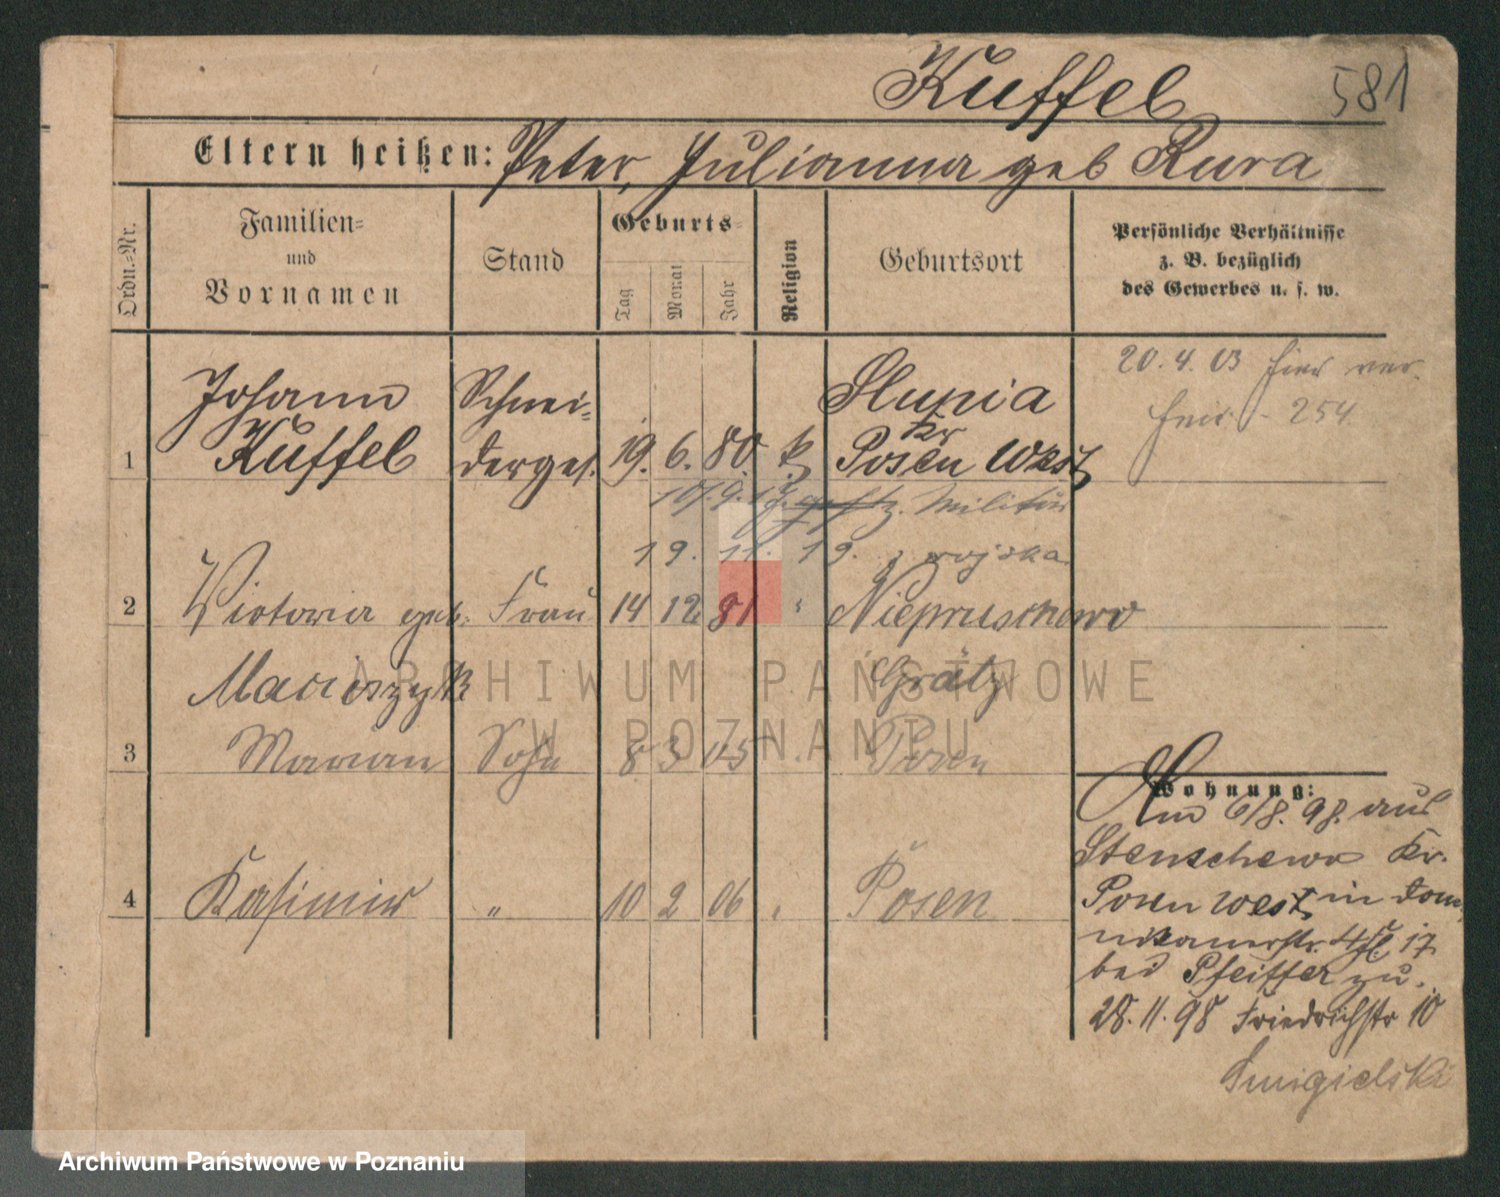 Kuffel 581
Eltern heißen: Peter, Julianna geb Rura
Ordn.=Nr.
Familien=
und
Vornamen
Stand
Geburts=
Tag
Monat
Jahr
Religion
Geburtsort
Persönliche Verhältnisse
z. B. bezüglich
des Gewerbes u. s. w.
20.4.03 hier ver.
254
Johann Schnei= Slupia
Kr
1 Kuffel derges. 19. 6. 80. k Posen West
10/9.17. z. Militär
19. 11. 19. z wojska
2 Victoria geb. Frau 14 12 81 " Niepruschewo
Maciaszyk Grätz
3 Marian Sohn 8 3 05 Posen
4 Kasimir " 10 2 06 Posen
Wohnung:
Am 6/8. 98. aus
Stenschewo Kr.
Posen West in Domi
nikanerstr. 17
bei Pfeiffer zu.
28.11.98 Friedrichstr 10
Smigielski
ARCHIWUM PAŃSTWOWE
W POZNANIU
Archiwum Państwowe w Poznaniu